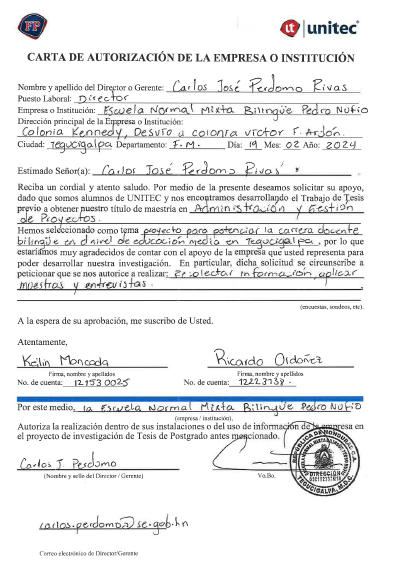 FP
unitec
CARTA DE AUTORIZACIÓN DE LA EMPRESA O INSTITUCIÓN
Nombre y apellido del Director o Gerente: Carlos José Perdomo Rivas
Puesto Laboral: Director
Empresa o Institución: Escuela Normal Mixta Bilingüe Pedro Nufio
Dirección principal de la Empresa o Institución:
Colonia Kennedy, Desvío a colonia victor F. Ardón.
Ciudad: Tegucigalpa Departamento: F.M. Día: 19 Mes: 02 Año: 2024
Estimado Señor(a): Carlos José Perdomo Rivas
Reciba un cordial y atento saludo. Por medio de la presente deseamos solicitar su apoyo,
dado que somos alumnos de UNITEC y nos encontramos desarrollando el Trabajo de Tesis
previo a obtener nuestro título de maestría en Administración y Gestión
de Proyectos.
Hemos seleccionado como tema proyecto para potenciar la carrera docente
bilingüe en el nivel de educación media en Tegucigalpa, por lo que
estaríamos muy agradecidos de contar con el apoyo de la empresa que usted representa para
poder desarrollar nuestra investigación. En particular, dicha solicitud se circunscribe a
peticionar que se nos autorice a realizar: Recolectar información, aplicar
muestras y entrevistas.
(encuestas, sondeos, etc).
A la espera de su aprobación, me suscribo de Usted.
Atentamente,
Keilin Moncada Ricardo Ordoñez
Firma, nombre y apellidos Firma, nombre y apellidos
No. de cuenta: 12153 0025 No. de cuenta: 12223738.
Por este medio, la Escuela Normal Mixta Bilingüe Pedro Nufio
(empresa / institución),
Autoriza la realización dentro de sus instalaciones o del uso de información de la empresa en
el proyecto de investigación de Tesis de Postgrado antes mencionado.
Carlos J. Perdomo
(Nombre y sello del Director / Gerente) Vo.Bo.
REPUBLICA DE HONDURAS, C.A.
DIRECCIÓN
TEGUCIGALPA, M.D.C.
carlos.perdomo@se.gob.hn
Correo electrónico de Director/Gerente